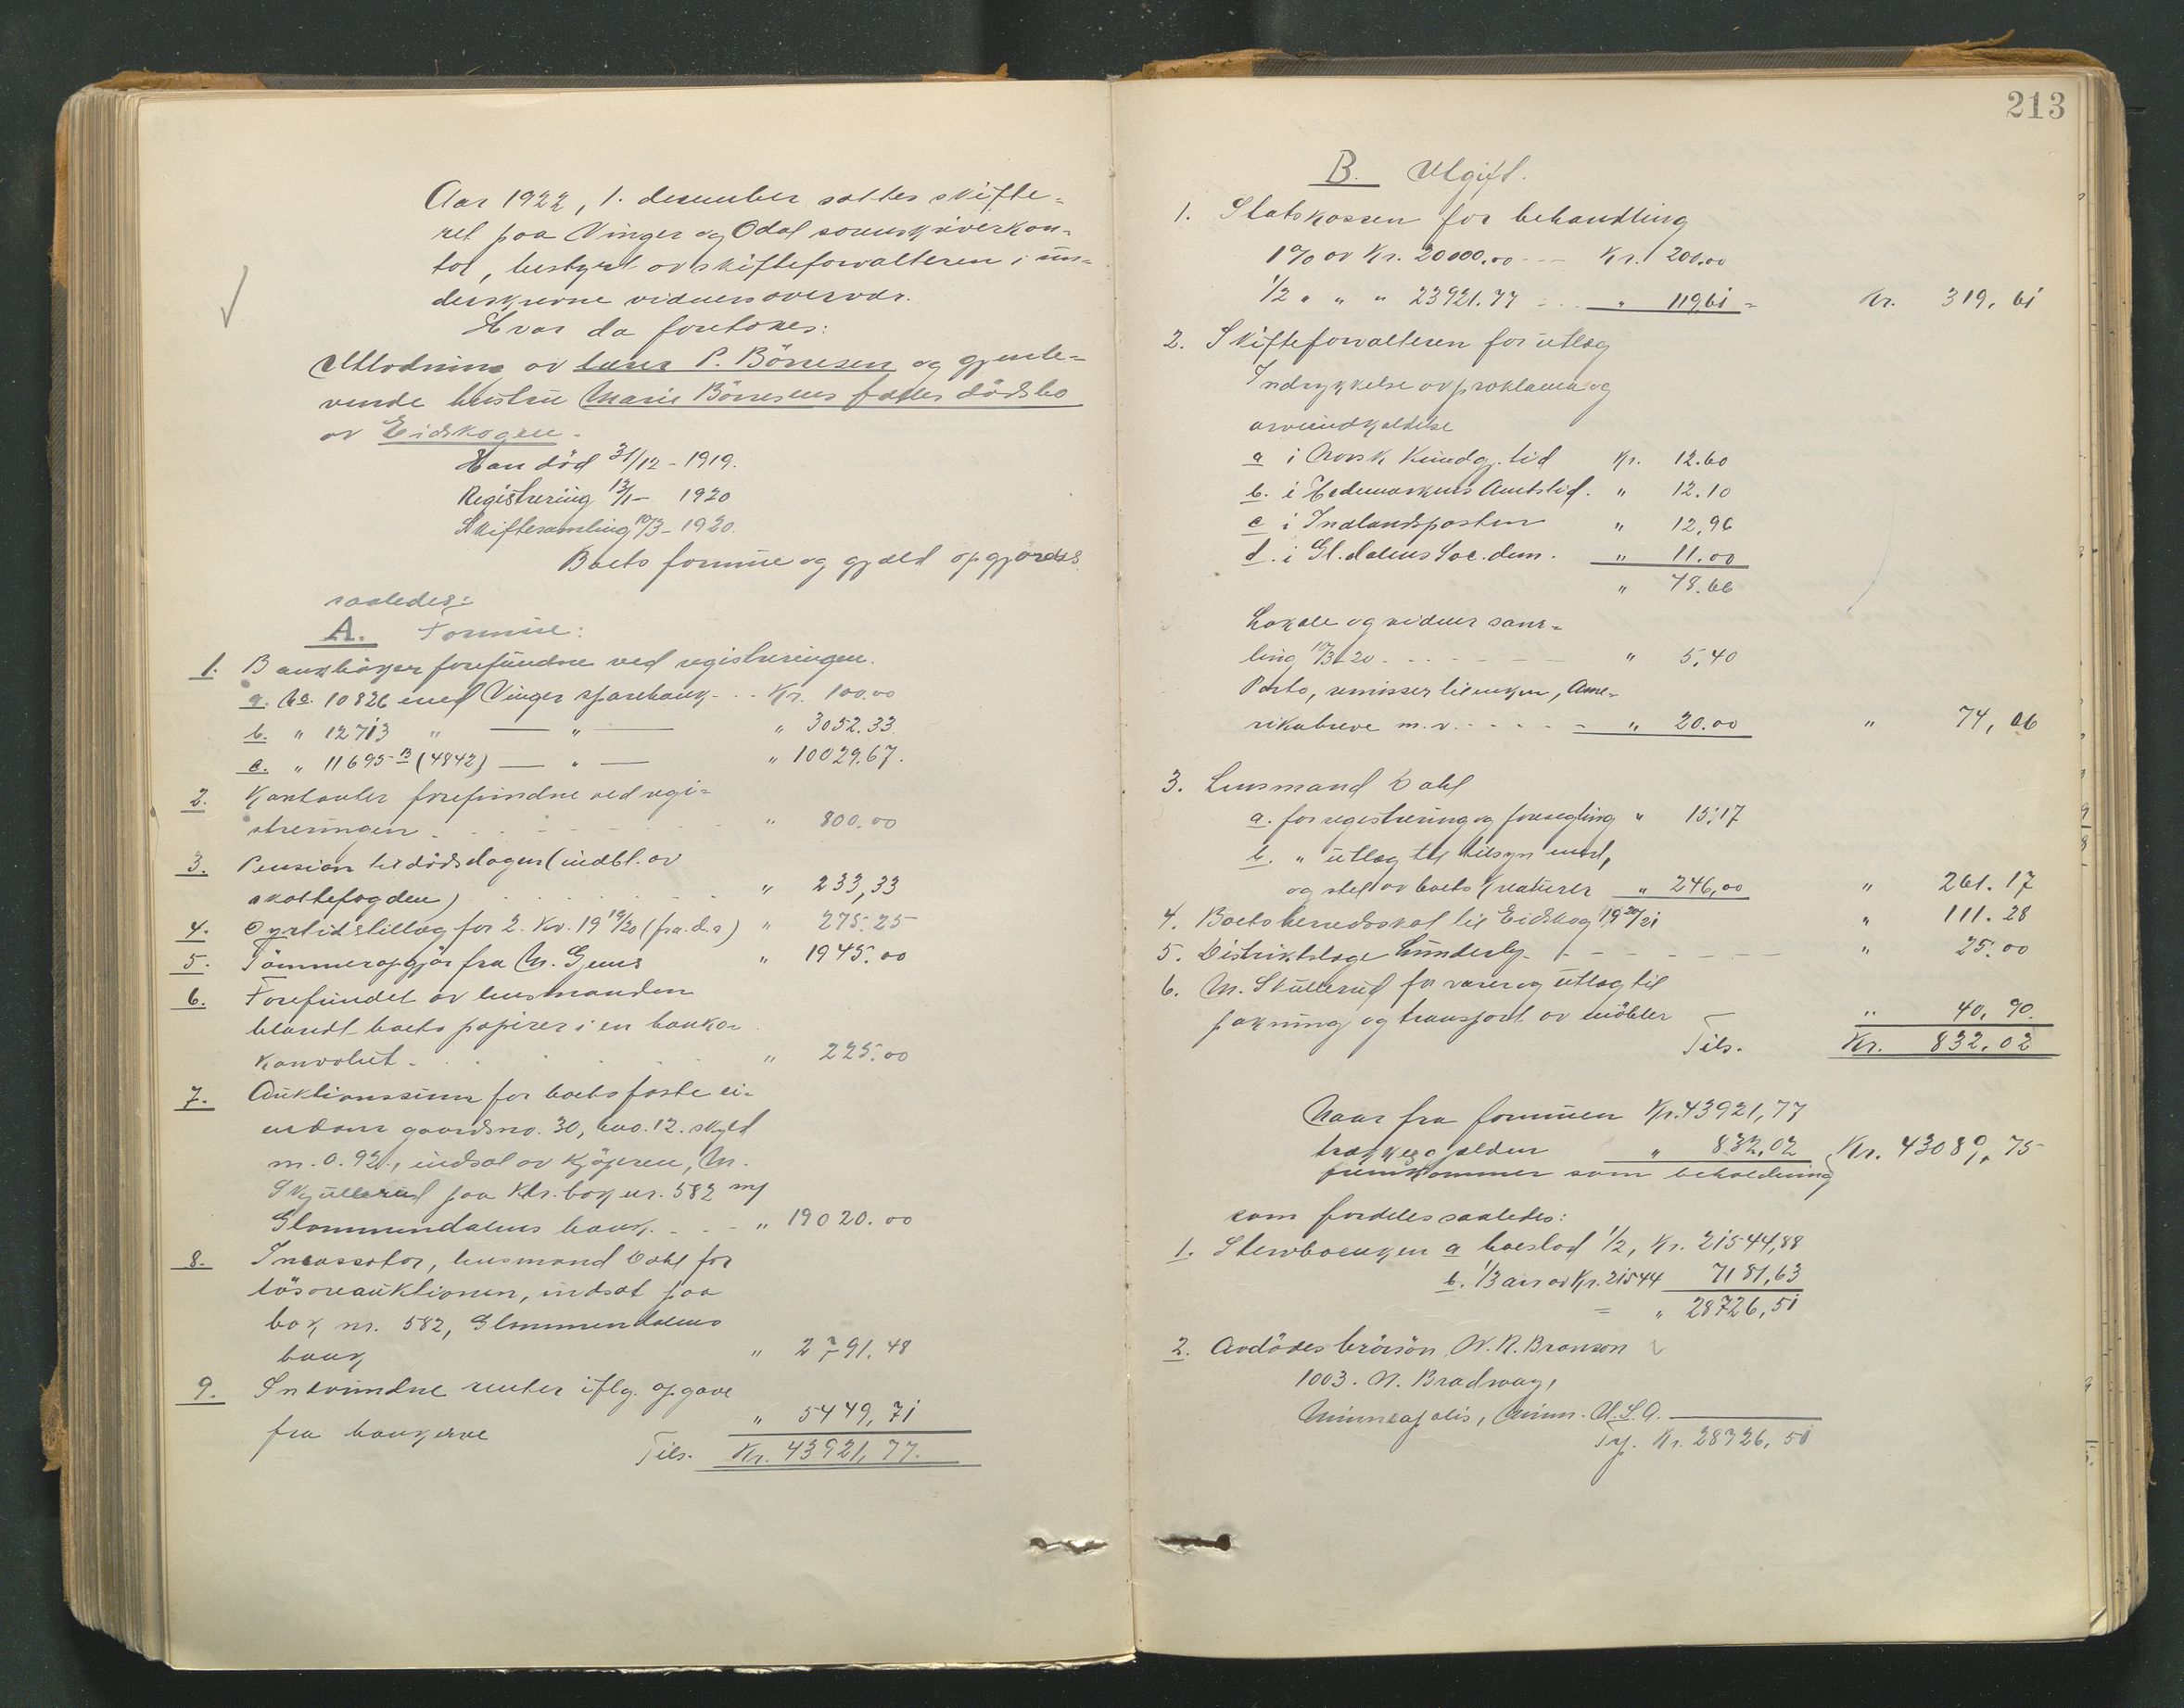 Aar 1922, 1. desember sattes skifte-
ret paa Vinger og Odal sorenskriverkon-
tor, bestyret av skifteforvalteren i un-
derskrevne vidners overvær.
Hvor da foretoges:
Utlodning av lærer P. Börresen og gjenle-
vende hustru Marie Börresens fælles dödsbo
av Eidskogen.
Han död 31/12 - 1919.
Registrering 13/1 - 1920
Skiftesamling 10/3 - 1920.
Boets formue og gjæld opgjøres
saaledes:
A. Formue:
1. Bankbøker forefundne ved registreringen.
a. No. 10826 med Vinger sparebank - . . Kr. 100.00
b. " 12713 " — " — " 3052.33
c. " 11695 B (4842) — " — " 10029.67.
2. Kontanter forefundne ved regi-
streringen - . . . . " 800.00
3. Pension til dödsdagen (indbt. av
skattefogden) . . . . " 233,33
4. Dyrtidstillæg for 2. Kv. 19 19/20 (fra d.s) " 275.25
5. Tömmeropgjör fra M. Gjems " 1945.00
6. Forefundet av lensmanden
blandt boets papirer i en banko-
konvolut - . . . . " 225.00
7. Auktionssum for boets faste ei-
endom gaardsno. 30, bno. 12. skyld
m. 0.92, indsat av kjøperen, M.
Skullerud paa Ktr. bok nr. 582 m/
Glommendalens bank. - - " 19020.00
8. Incassator, lensmand Dahl for
lösöreauktionen, indsat paa
bok nr. 582, Glommendalens
bank " 2791.48
9. Indvundne renter iflg. opgave
fra bankerne " 5449,71
Tils. Kr. 43921,77.
213
B. Utgift.
1. Statskassen for behandling
1% av Kr. 20000.00 - - - Kr. 200.00
1/2 " " " 23921.77 - . . . " 119,61 = Kr. 319,61
2. Skifteforvalteren for utlæg
Indrykkelse av proklama og
arveindkaldelse
a i Norsk Kundg. tid Kr. 12.60
b. i Hedemarkens Amtstid. " 12.10
c i Indlandsposten " 12,96
d. i Gl. dalens Soc. dem. " 11.00
" 48.66
Lokale og vidner sam-
ling 10/3 20 - . . - - - " 5,40
Porto, remisser til enken, Ame-
rikabreve m.v. - - - - - " 20.00 " 74,06
3. Lensmand Dahl
a. for registrering og forsegling " 15.17
b. " utlæg til tilsyn med,
og stel av boets kreaturer " 246,00 " 261.17
4. Boets herredsskat til Eidskog 19 20/21 " 111.28
5. Distriktslæge Lunderby - - - - - " 25.00
6. M. Skullerud for varer og utlæg til
pakning og transport av möbler " 40,90.
Tils. Kr. 832,02
Naar fra formuen Kr. 43921,77
trækkes gjælden " 832,02
fremkommer som beholdning Kr. 43089,75
som fordeles saaledes:
1. Sterwboenken a boeslod 1/2, Kr. 21544,88
b. 1/3 arv av Kr. 21544 7181,63
= " 28726,51
2. Avdödes brörsön N. R. Bronson
1003. N. Bradway,
Minneapolis, Minn. U.S.A.
Trf. Kr. 28726,51